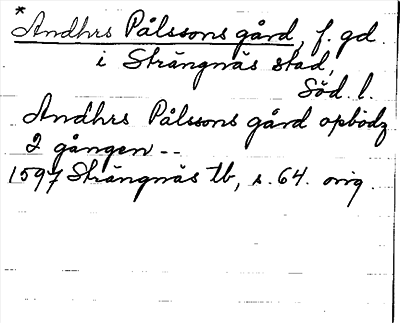 * Andhrs Pålssons gård, f. gd
i Strängnäs stad,
Söd. l.
Andhrs Pålssons gård opbödz
2 gången --
1597 Strängnäs tb, s. 64. orig